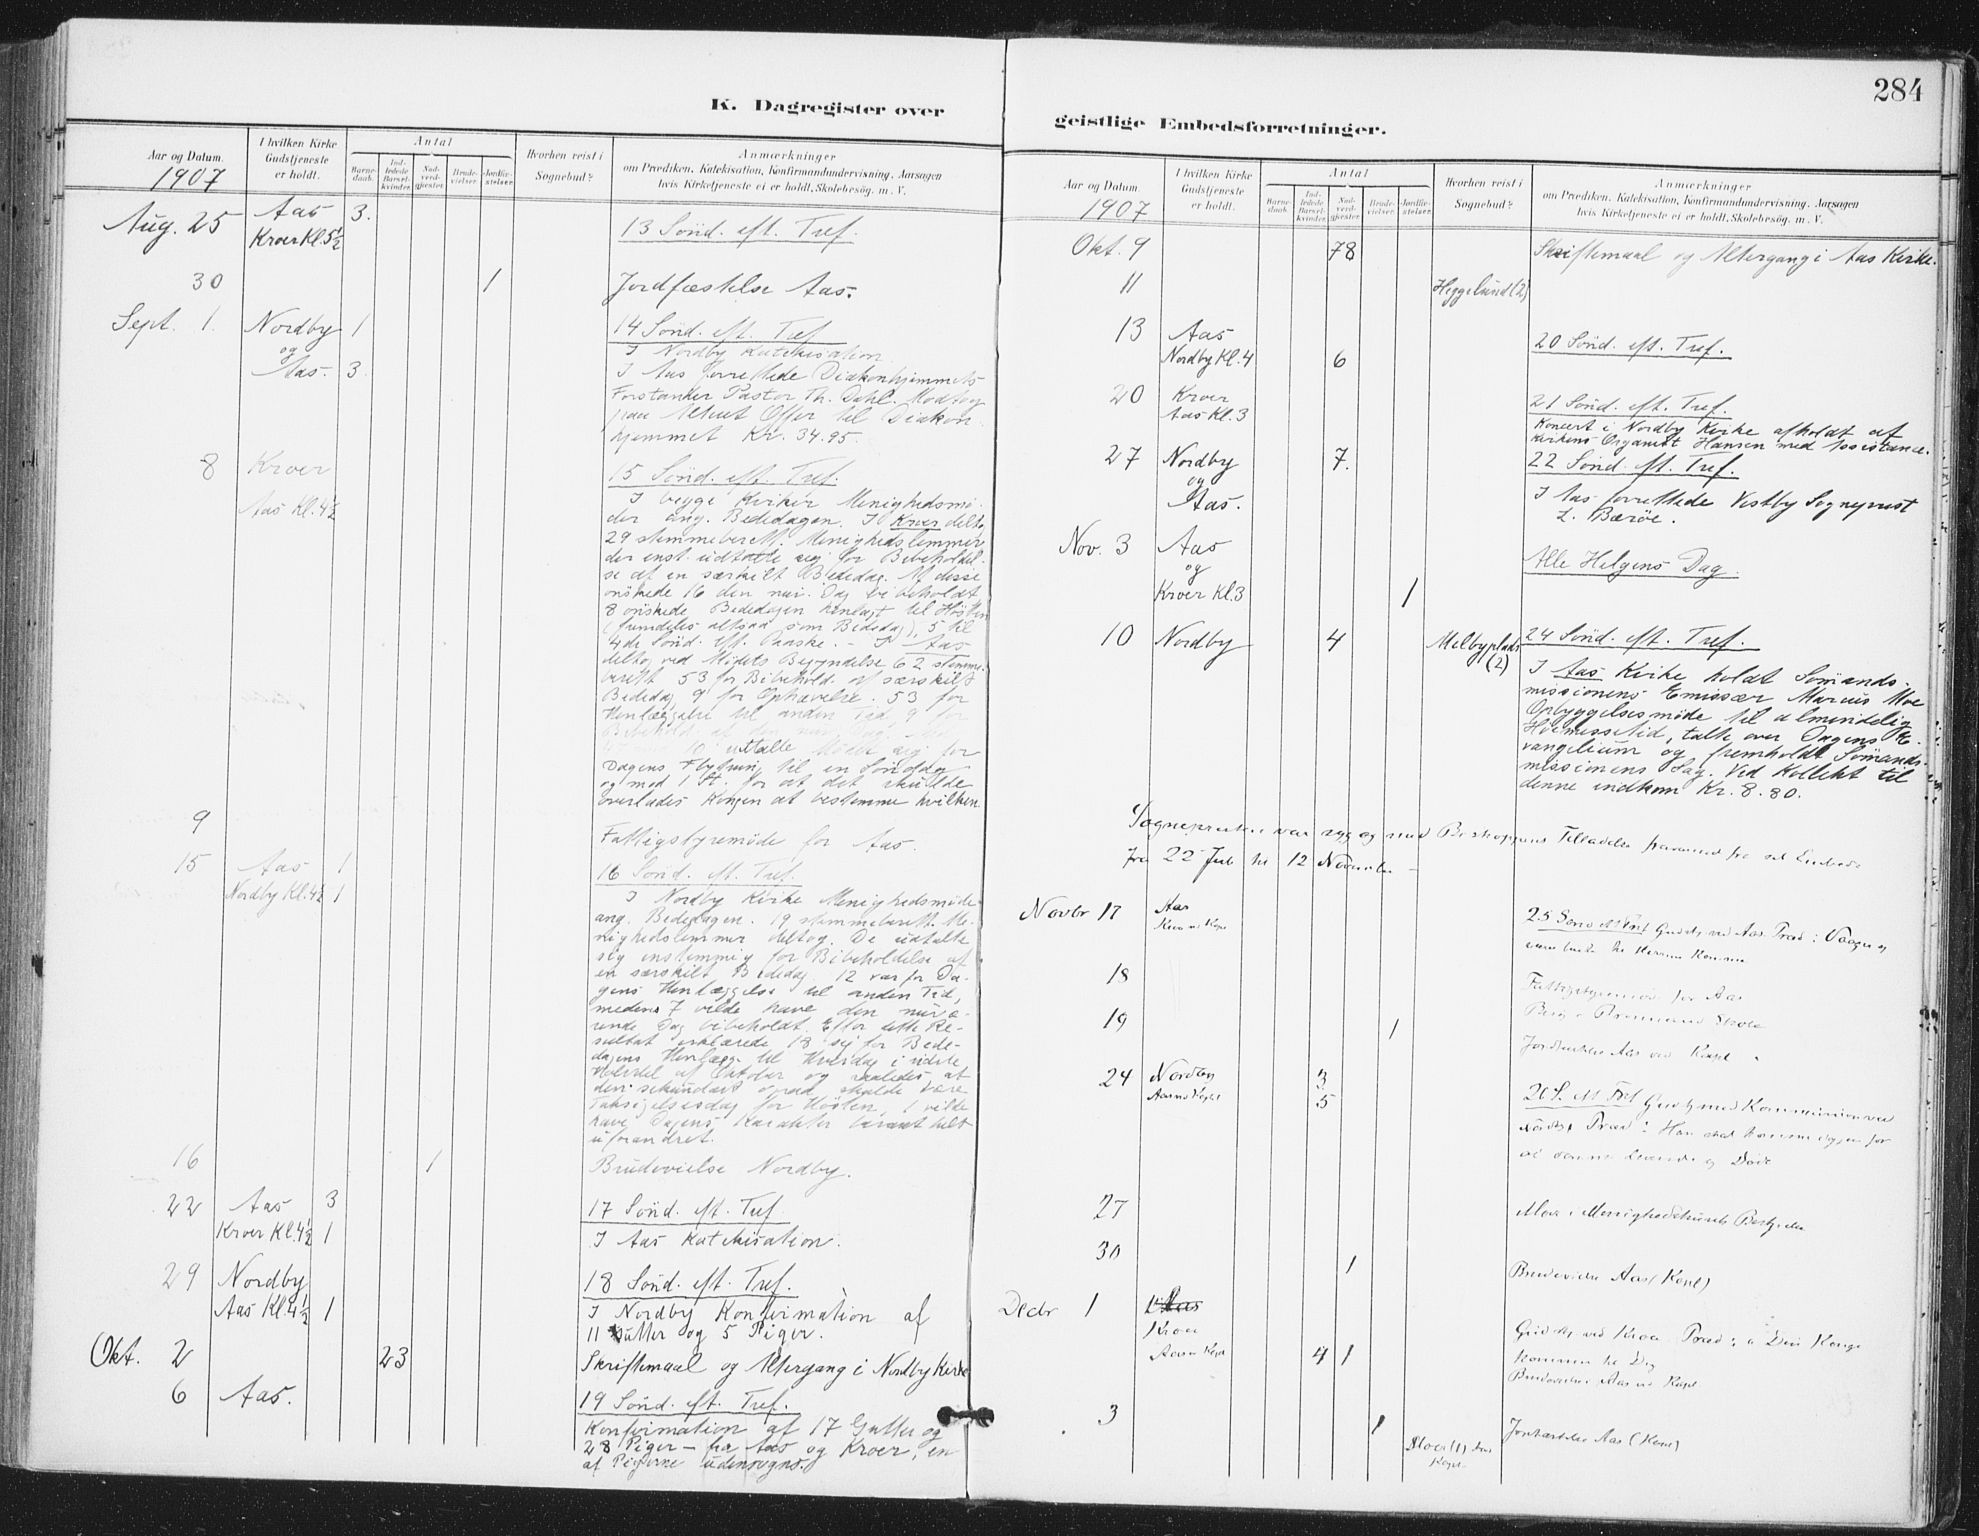 284
K. Dagregister over
geistlige Embedsforretninger.
Aar og Datum.
1907
I hvilken Kirke Gudstjeneste er holdt.
Antal
Barnedaab.
Indledede Barselkvinder.
Nadverdgjester.
Brudevielser.
Jordfæstelser.
Hvorhen reist i Sognebud?
Anmærkninger
om Prædiken, Katekisation, Konfirmandundervisning, Aarsagen
hvis Kirketjeneste ei er holdt, Skolebesøg, m. V.
Aug. 25 Aas 3.
Kroer Kl. 5½ 13 Sönd. eft. Tref.
30 1 Jordfæstelse Aas.
Sept. 1. Nordby 1 14 Sönd. eft. Tref.
og I Nordby Katekisation
Aas. 3. I Aas forrettede Diakonhjemmets
Forstander Pastor Th. Dahl. Modtog
paa Alteret Offer til Diakon-
hjemmet Kr. 34.95.
8 Kroer 15 Sönd. eft. Tref.
Aas Kl. 4½ I begge Kirker Menighedsmö-
der ang. Bededagen. I Kroer deltog
29 stemmeberett. Menighedslemmer
der enst. udtalte sig for Bibeholdel-
se af en særskilt Bededag. Af disse
önskede 16 den nuv. Dag bibeholdt
8 önskede Bededagen henlagt til Hösten
(fremdeles altsaa som Bededag), 5 til
4de Sönd. eft. Paaske. - I Aas
deltog ved Mödets Begyndelse 62 stemme-
berett. 53 for Bibehold. af særskilt
Bededag 9 for Ophævelse. 53 for
Henlæggelse til anden Tid, 9 for
10 uttalte Mödet sig for
Dagens Flytning til en Söndag
og mod 1 St. for at det skulde
overlades Kongen at bestemme hvilken
9 Fattigstyremöde for Aas.
15 Aas 1 16 Sönd. eft. Tref.
Nordby Kl. 4½ 1 I Nordby Kirke Menighedsmöde
ang. Bededagen. 19 stemmeberett. Me-
nighedslemmer deltog. De udtalte
sig enstemmig for Bibeholdelse af
en særskilt Bededag. 12 var for Da-
gens Henlæggelse til anden Tid,
medens 7 vilde have den nuvæ-
rende Dag bibeholdt. Efter dette Re-
sultat erklærede 18 sig for Bede-
dagens Henlægg. til Hverdag i sidste
Halvdel af Oktober og saaledes at
den sekundært ogsaa skulde være
Taksigelsesdag for Hösten, 1 vilde
have Dagens Karakter bevaret helt
uforandret.
16 1 Brudevielse Nordby.
22 Aas 3 17 Sönd. eft. Tref.
Kroer Kl. 4½ 1 I Aas Katekisation.
29 Nordby 18 Sönd. eft. Tref.
Aas Kl. 4½ 1 I Nordby Konfirmation af
11 Gutter og 5 Piger.
Okt. 2 23 Skriftemaal og Altergang i Nordby Kirke
6 Aas. 19 Sönd. eft. Tref.
Konfirmation af 17 Gutter og
28 Piger - fra Aas og Kroer, en
af Pigerne udensogns.
Aar og Datum.
1907
I hvilken Kirke Gudstjeneste er holdt.
Antal
Barnedaab.
Indledede Barselkvinder.
Nadverdgjester.
Brudevielser.
Jordfæstelser.
Hvorhen reist i Sognebud?
Anmærkninger
om Prædiken, Katekisation, Konfirmandundervisning, Aarsagen
hvis Kirketjeneste ei er holdt, Skolebesög, m. V.
Okt. 9 78 Skriftemaal og Altergang i Aas Kirke.
11 Heggelund (2)
13 Aas 20 Sönd. eft. Tref.
Nordby Kl. 4 6
20 Kroer 21 Sönd. eft. Tref.
Aas Kl. 3 Koncert i Nordby Kirke afholdt af
Kirkens Organist Hansen med Assistance.
27 Nordby 7. 22 Sönd. eft. Tref.
og I Aas forrettede Vestby Sogneprest
Aas. L. Bæröe.
Nov. 3 Aas Alle Helgens Dag.
og
Kroer Kl. 3 1
10 Nordby 4 Melbyplads (2) 24 Sönd. eft. Tref.
I Aas Kirke holdt Sömands-
missionens Emissær Marcus Moe
Opbyggelsesmöde til almindelig
Höimessetid, talte over Dagens E-
vangelium og fremholdt Sömands-
missionens Sag. Ved Kollekt til
denne indkom Kr. 8.80.
Sognepresten var syg og med Biskoppens Tilladelse fraværende fra sit Embede
fra 22 Juli til 12 November
Novbr 17 Aas 25 Sönd eft Tref Gudstj ved Aas
Kroer v Kapl
18 Fattigstyremöde for Aas
19 1 Skole
Jordfæstelse Aas ved Kapl.
24 Nordby 3 26 S. eft Tref Gudstj med Kommunion ved
Aas v Kapl 5 Nordby Præd: Han skal komme igjen for
at dømme Levende og Døde
27 Møde i Menighedshusets Bestyrelse
30 1 Brudevielse Aas (Kapl)
Decbr 1 Aas
Kroer Gudstj ved Kroer Præd: Din Konge
Aas v Kapl 4 1 kommer til Dig
Brudevielse Aas v Kapl.
3 1 Jordfæstelse Aas (Kapl)
Kapl.